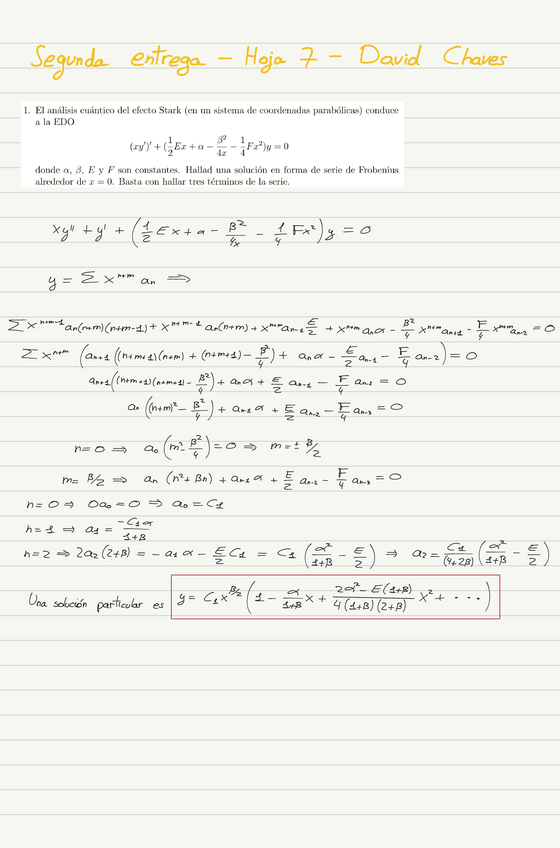 Segunda entrega - Hoja 7 - David Chaves
1. El análisis cuántico del efecto Stark (en un sistema de coordenadas parabólicas) conduce
a la EDO
(xy')' + (1/2 Ex + α − β²/4x − 1/4 Fx²)y = 0
donde α, β, E y F son constantes. Hallad una solución en forma de serie de Frobenius
alrededor de x = 0. Basta con hallar tres términos de la serie.
xy'' + y' + (1/2 Ex + α − β²/4x − 1/4 Fx²) y = 0
y = Σ xⁿ⁺ᵐ aₙ ⟹
Σ x^(n+m-1) aₙ(n+m)(n+m-1) + x^(n+m-1) aₙ(n+m) + x^(n+m) aₙ₋₁ E/2 + x^(n+m) aₙα − β²/4 x^(n+m) aₙ₊₁ − F/4 x^(n+m) aₙ₋₂ = 0
Σ x^(n+m) (aₙ₊₁ ((n+m+1)(n+m) + (n+m+1) − β²/4) + aₙα − E/2 aₙ₋₁ − F/4 aₙ₋₂) = 0
aₙ₊₁((n+m+1)(n+m+1) − β²/4) + aₙα + E/2 aₙ₋₁ − F/4 aₙ₋₂ = 0
aₙ ((n+m)² − β²/4) + aₙ₋₁ α + E/2 aₙ₋₂ − F/4 aₙ₋₃ = 0
n=0 ⟹ a₀ (m² − β²/4) = 0 ⟹ m = ± β/2
m = β/2 ⟹ aₙ (n² + βn) + aₙ₋₁ α + E/2 aₙ₋₂ − F/4 aₙ₋₃ = 0
n = 0 ⟹ 0a₀ = 0 ⟹ a₀ = C₁
n = 1 ⟹ a₁ = −C₁α/1+β
n = 2 ⟹ 2a₂(2+β) = −a₁α − E/2 C₁ = C₁ (α²/1+β − E/2) ⟹ a₂ = C₁/(4+2β) (α²/1+β − E/2)
Una solución particular es y = C₁x^(β/2) (1 − α/1+β x + 2α² − E(1+β)/4(1+β)(2+β) x² + ···)